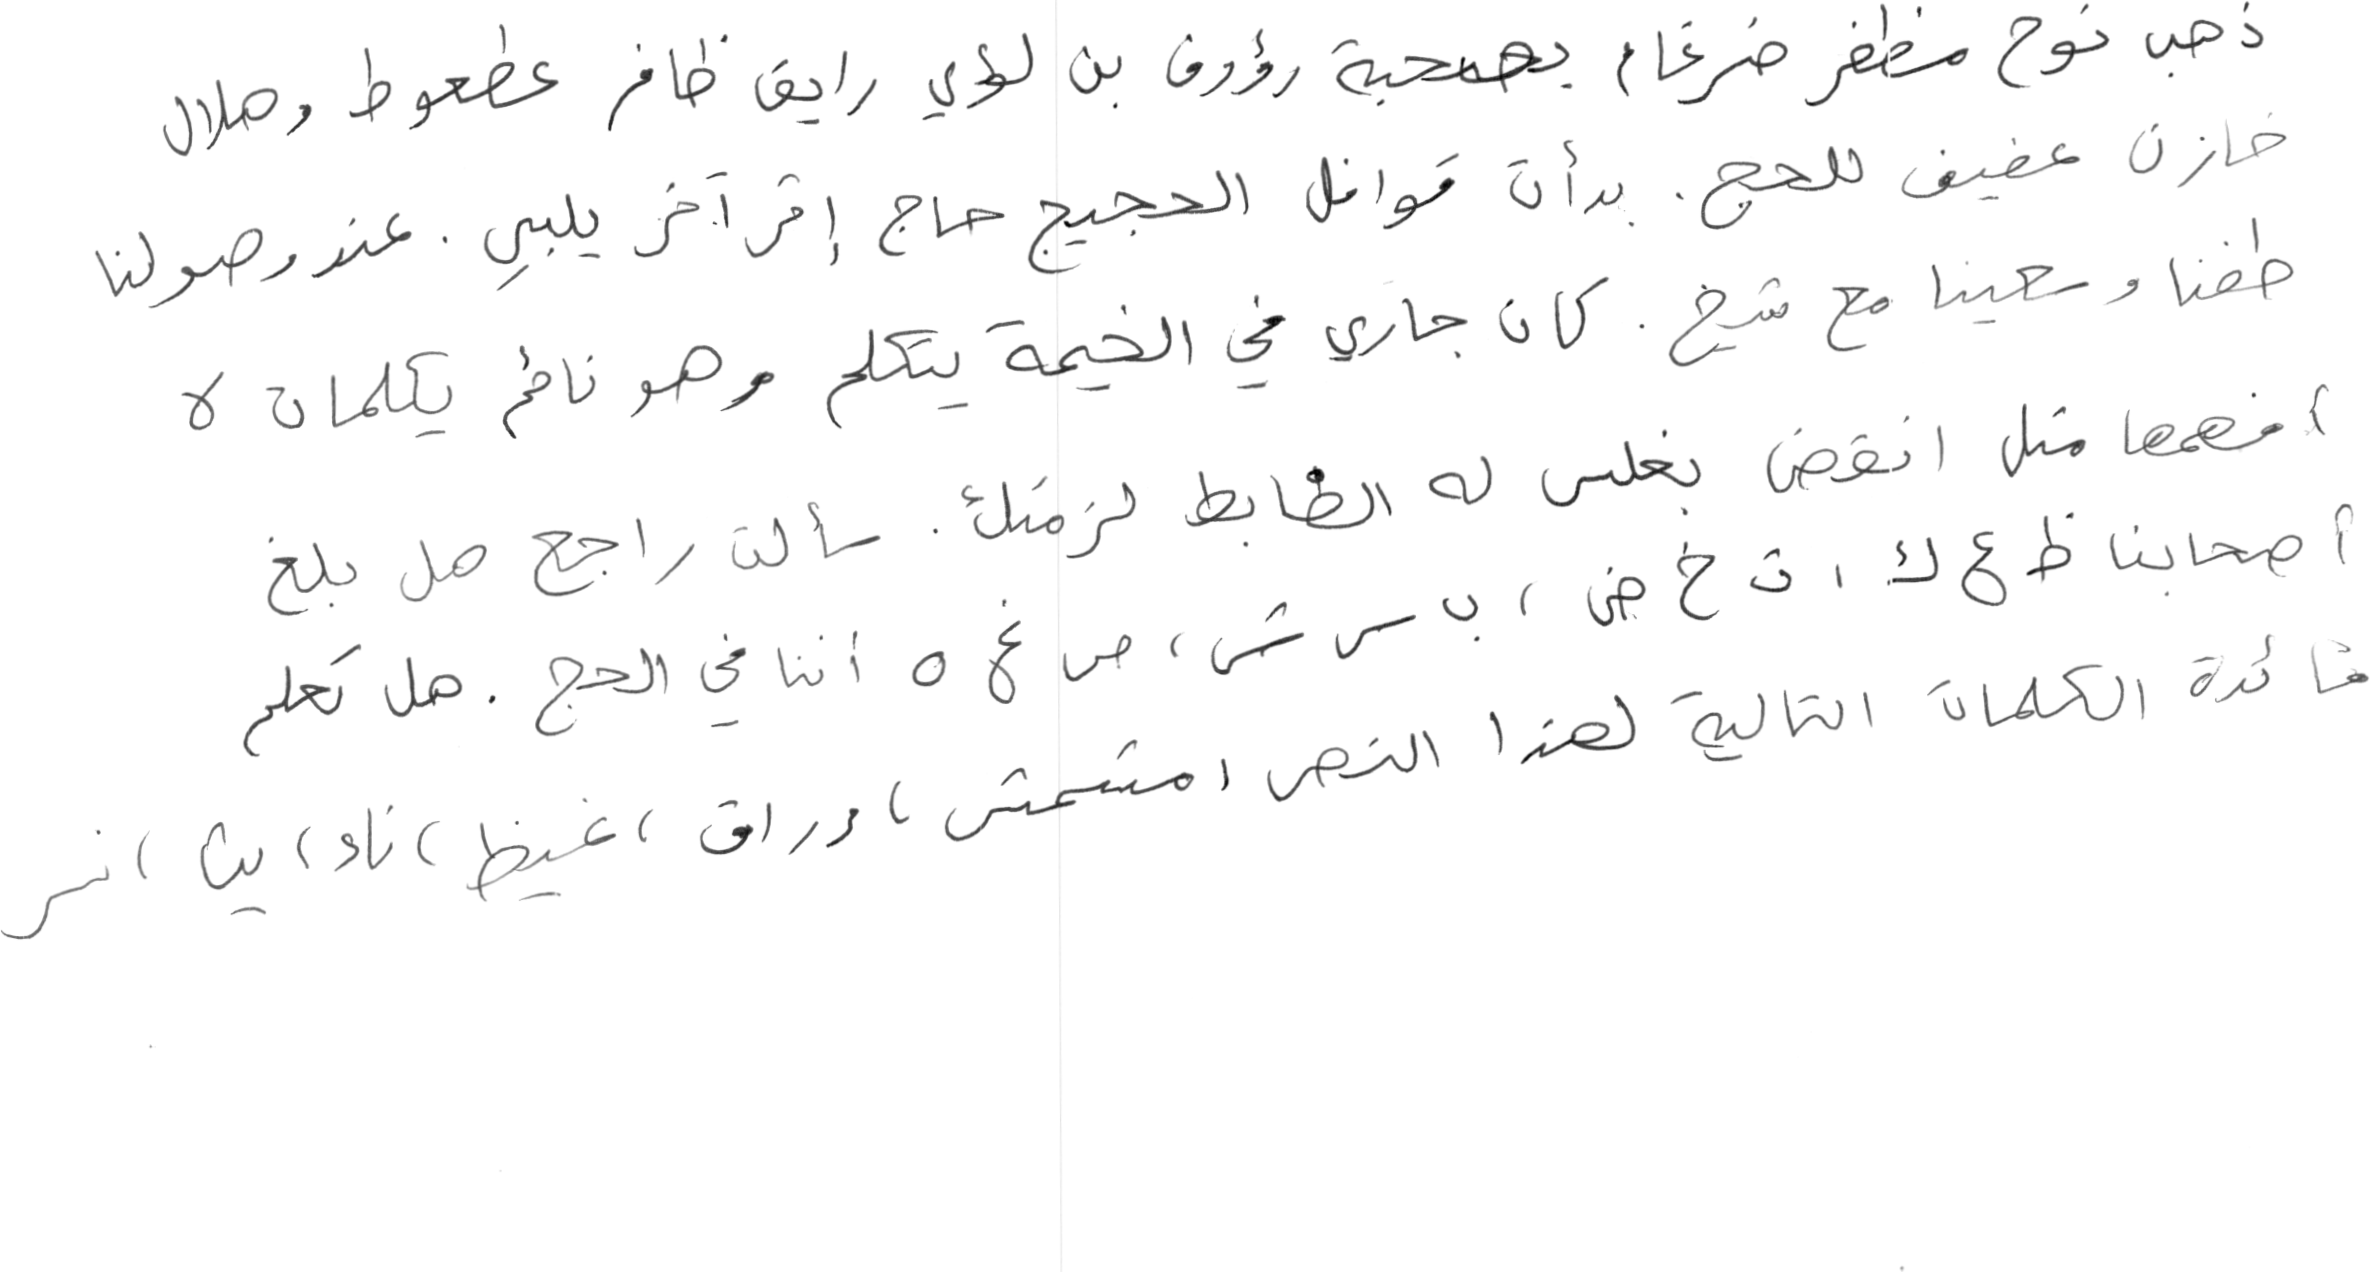 ذهب نوح مظفر ضرغام بصحبة رؤوف بن لؤي رايق ظافر عطعوط وهلال
خازن عفيف للحج. بدأت قوافل الحجيج حاج إثر آخر يلبي. عند وصولنا
طفنا وسعينا مع شيخ. كان جاري في الخيمة يتكلم وهو نائم بكلمات لا
أفهمها مثل انقض بغلس له الضابط لزمتك. سألت راجح هل بلغ
أصحابنا ظ ع ك ، ث خ ض ، ب س ش، ص غ ه أننا في الحج. هل تعلم
فائدة الكلمات التالية لهذا النص ، مشمش ، وراق ، غيظ ، ناو ، يث ، نسر